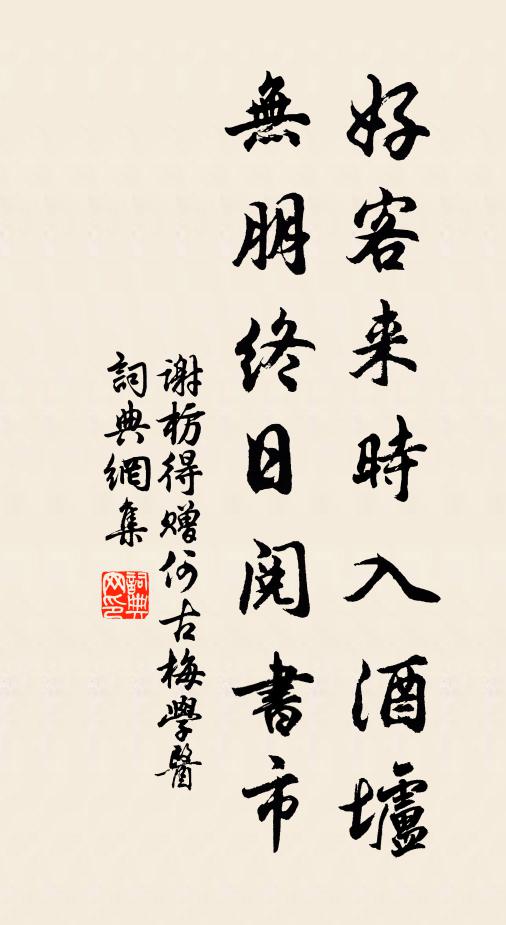 好客来時入酒壚
無朋終日閱書市
谢枋得赠何古梅學醫
詞典網集
詞典网印